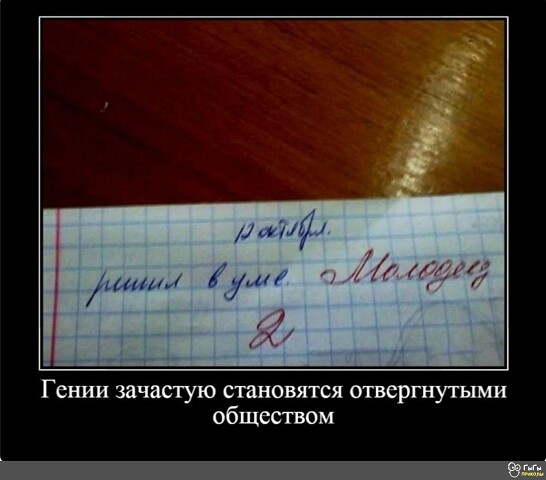 12 октября.
решил в уме. Молодец
2
Гении зачастую становятся отвергнутыми
обществом
ГыГы
приколы